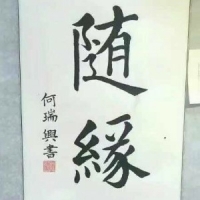 随緣
何瑞興書